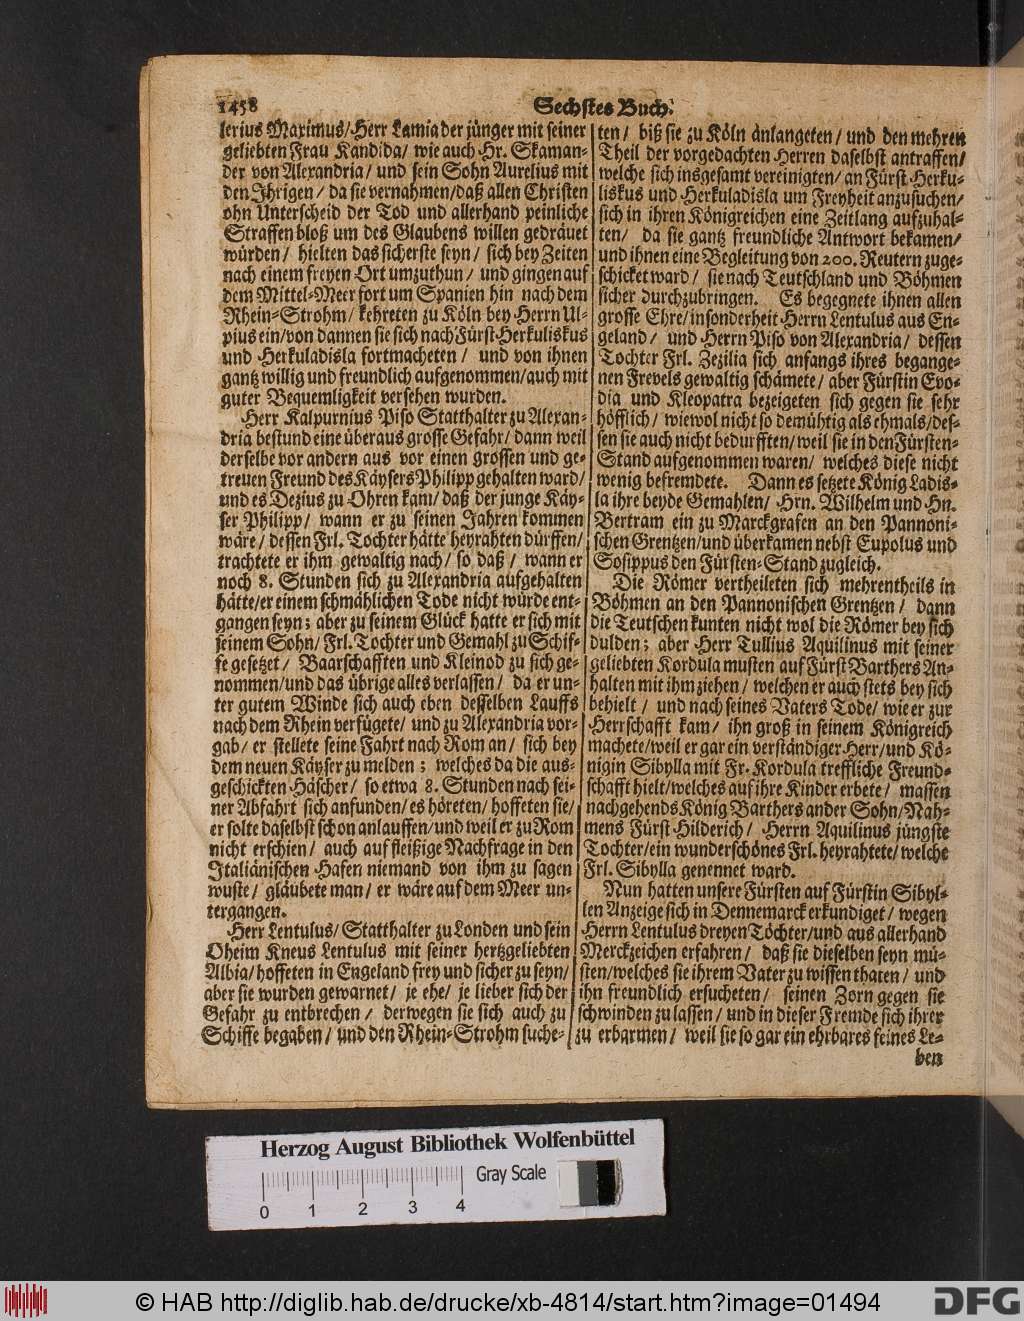 1458
Sechstes Buch.
lerius Maximus/ Herr Lamia der jünger mit seiner
geliebten Frau Kandida/ wie auch Hr. Skaman-
der von Alexandria/ und sein Sohn Aurelius mit
den Ihrigen/ da sie vernahmen/ daß allen Christen
ohn Unterscheid der Tod und allerhand peinliche
Straffen bloß um des Glaubens willen gedräuet
würden/ hielten das sicherste seyn/ sich bey Zeiten
nach einem freyen Ort umzuthun/ und gingen auf
dem Mittel-Meer fort um Spanien hin nach dem
Rhein-Strohm/ kehreten zu Köln bey Herrn Ul-
pius ein/ von dannen sie sich nach Fürst Herkuliskus
und Herkuladisla fortmacheten/ und von ihnen
gantz willig und freundlich aufgenommen/ auch mit
guter Bequemligkeit versehen wurden.
Herr Kalpurnius Piso Statthalter zu Alexan-
dria bestund eine überaus grosse Gefahr/ dann weil
derselbe vor andern aus vor einen grossen und ge-
treuen Freund des Käysers Philipp gehalten ward/
und es Dezius zu Ohren kam/ daß der junge Käy-
ser Philipp/ wann er zu seinen Jahren kommen
wäre/ dessen Frl. Tochter hätte heyrahten dürffen/
trachtete er ihm gewaltig nach/ so daß/ wann er
noch 8. Stunden sich zu Alexandria aufgehalten
hätte/ er einem schmählichen Tode nicht würde ent-
gangen seyn; aber zu seinem Glück hatte er sich mit
seinem Sohn/ Frl. Tochter und Gemahl zu Schif-
fe gesetzet/ Baarschafften und Kleinod zu sich ge-
nommen/ und das übrige alles verlassen/ da er un-
ter gutem Winde sich auch eben desselben Lauffs
nach dem Rhein verfügete/ und zu Alexandria vor-
gab/ er stellete seine Fahrt nach Rom an/ sich bey
dem neuen Käyser zu melden; welches da die aus-
geschickten Häscher/ so etwa 8. Stunden nach sei-
ner Abfahrt sich anfunden/ es höreten/ hoffeten sie/
er solte daselbst schon anlauffen/ und weil er zu Rom
nicht erschien/ auch auf fleißige Nachfrage in den
Italiänischen Hafen niemand von ihm zu sagen
wuste/ gläubete man/ er wäre auf dem Meer un-
tergangen.
Herr Lentulus/ Statthalter zu Londen und sein
Oheim Kneus Lentulus mit seiner hertzgeliebten
Albia/ hoffeten in Engeland frey und sicher zu seyn/
aber sie wurden gewarnet/ je ehe/ je lieber sich der
Gefahr zu entbrechen/ derwegen sie sich auch zu
Schiffe begaben/ und den Rhein-Strohm suche-
ten/ biß sie zu Köln anlangeten/ und den mehren
Theil der vorgedachten Herren daselbst antraffen/
welche sich insgesamt vereinigten/ an Fürst Herku-
liskus und Herkuladisla um Freyheit anzusuchen/
sich in ihren Königreichen eine Zeitlang aufzuhal-
ten/ da sie gantz freundliche Antwort bekamen/
und ihnen eine Begleitung von 200. Reutern zuge-
schicket ward/ sie nach Teutschland und Böhmen
sicher durchzubringen. Es begegnete ihnen allen
grosse Ehre/ insonderheit Herrn Lentulus aus En-
geland/ und Herrn Piso von Alexandria/ dessen
Tochter Frl. Zezilia sich anfangs ihres begange-
nen Frevels gewaltig schämete/ aber Fürstin Evo-
dia und Kleopatra bezeigeten sich gegen sie sehr
höfflich/ wiewol nicht so demühtig als ehmals/ des-
sen sie auch nicht bedurfften/ weil sie in den Fürsten-
Stand aufgenommen waren/ welches diese nicht
wenig befremdete. Dann es setzete König Ladis-
la ihre beyde Gemahlen/ Hrn. Wilhelm und Hn.
Bertram ein zu Marckgrafen an den Pannoni-
schen Grentzen/ und überkamen nebst Eupolus und
Sosippus den Fürsten-Stand zugleich.
Die Römer vertheileten sich mehrentheils in
Böhmen an den Pannonischen Grentzen/ dann
die Teutschen kunten nicht wol die Römer bey sich
dulden; aber Herr Tullius Aquilinus mit seiner
geliebten Kordula musten auf Fürst Barthers An-
halten mit ihm ziehen/ welchen er auch stets bey sich
behielt/ und nach seines Vaters Tode/ wie er zur
Herrschafft kam/ ihn groß in seinem Königreich
machete/ weil er gar ein verständiger Herr/ und Kö-
nigin Sibylla mit Fr. Kordula treffliche Freund-
schafft hielt/ welches auf ihre Kinder erbete/ massen
nachgehends König Barthers ander Sohn/ Nah-
mens Fürst Hilderich/ Herrn Aquilinus jüngste
Tochter/ ein wunderschönes Frl. heyrahtete/ welche
Frl. Sibylla genennet ward.
Nun hatten unsere Fürsten auf Fürstin Sibyl-
len Anzeige sich in Dennemarck erkundiget/ wegen
Herrn Lentulus dreyen Töchter/ und aus allerhand
Merckzeichen erfahren/ daß sie dieselben seyn mü-
sten/ welches sie ihrem Vater zu wissen thaten/ und
ihn freundlich ersucheten/ seinen Zorn gegen sie
schwinden zu lassen/ und in dieser Fremde sich ihrer
zu erbarmen/ weil sie so gar ein ehrbares feines Le-
ben
Herzog August Bibliothek Wolfenbüttel
Gray Scale
0 1 2 3 4
© HAB http://diglib.hab.de/drucke/xb-4814/start.htm?image=01494
DFG